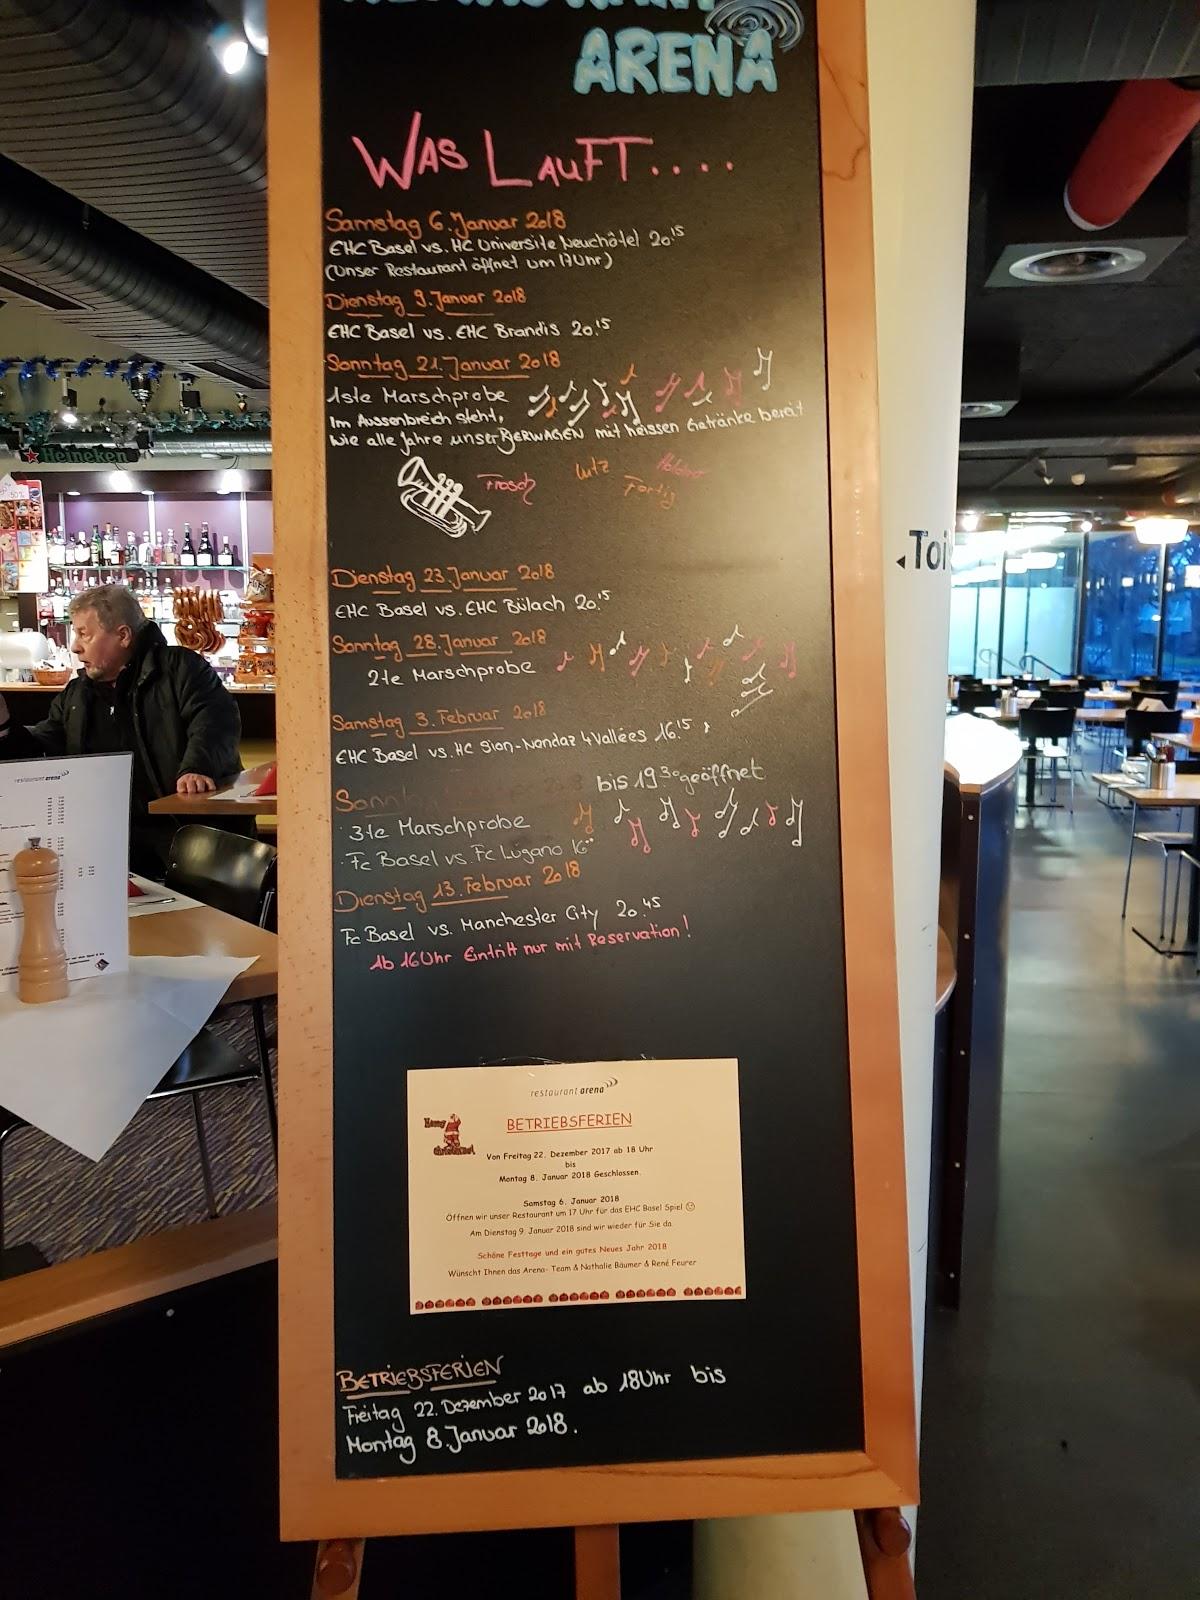 ARENA
WAS LAUFT....
Samstag 6. Januar 2018
EHC Basel vs. HC Universite Neuchôtel 20.15
(Unser Restaurant öffnet um 17Uhr)
Dienstag 9. Januar 2018
EHC Basel vs. EHC Brandis 20.15
Sonntag 21. Januar 2018
1ste Marschprobe
Im Aussenbreich steht,
wie alle Jahre unser BIERWAGEN mit heissen Getränke bereit
Frosch
Lutz
Fertig
Dienstag 23. Januar 2018
EHC Basel vs. EHC Bülach 20.15
Sonntag 28. Januar 2018
2te Marschprobe
Samstag 3. Februar 2018
EHC Basel vs. HC Sion-Nendaz 4Vallées 16.15
bis 19.30 geöffnet
Sonntag
3te Marschprobe
Fc Basel vs. Fc Lugano 16.00
Dienstag 13. Februar 2018
Fc Basel vs. Manchester City 20.45
Ab 16Uhr Eintritt nur mit Reservation!
restaurant arena
BETRIEBSFERIEN
Von Freitag 22. Dezember 2017 ab 18 Uhr
bis
Montag 8. Januar 2018 Geschlossen.
Samstag 6. Januar 2018
Öffnen wir unser Restaurant um 17 Uhr für das EHC Basel Spiel ☺
Am Dienstag 9. Januar 2018 sind wir wieder für Sie da
Schöne Festtage und ein gutes Neues Jahr 2018
Wünscht Ihnen das Arena- Team & Nathalie Bäumer & René Feurer
BETRIEBSFERIEN
Freitag 22. Dezember 2017 ab 18Uhr bis
Montag 8. Januar 2018.
Heineken
restaurant arena
Toi